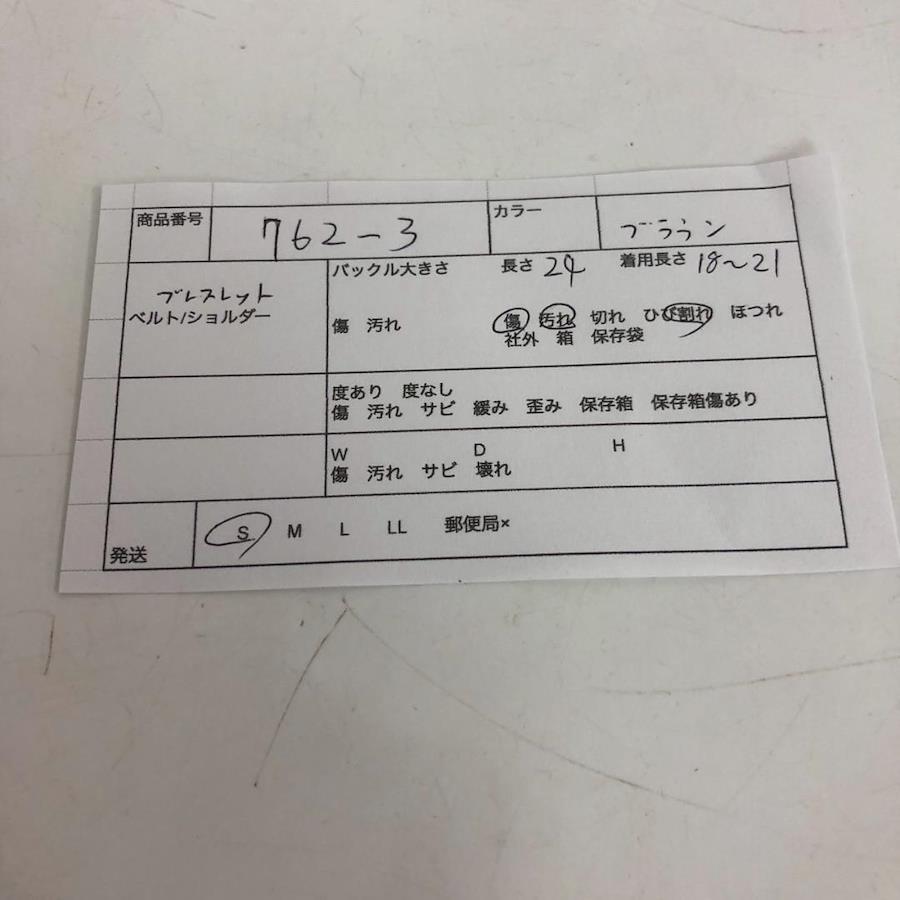 商品番号 762-3 カラー ブラウン
バックル大きさ 長さ 24 着用長さ 18~21
ブレスレット
ベルト/ショルダー
傷 汚れ 傷 汚れ 切れ ひび割れ ほつれ
社外 箱 保存袋
度あり 度なし
傷 汚れ サビ 緩み 歪み 保存箱 保存箱傷あり
W D H
傷 汚れ サビ 壊れ
発送 S M L LL 郵便局×